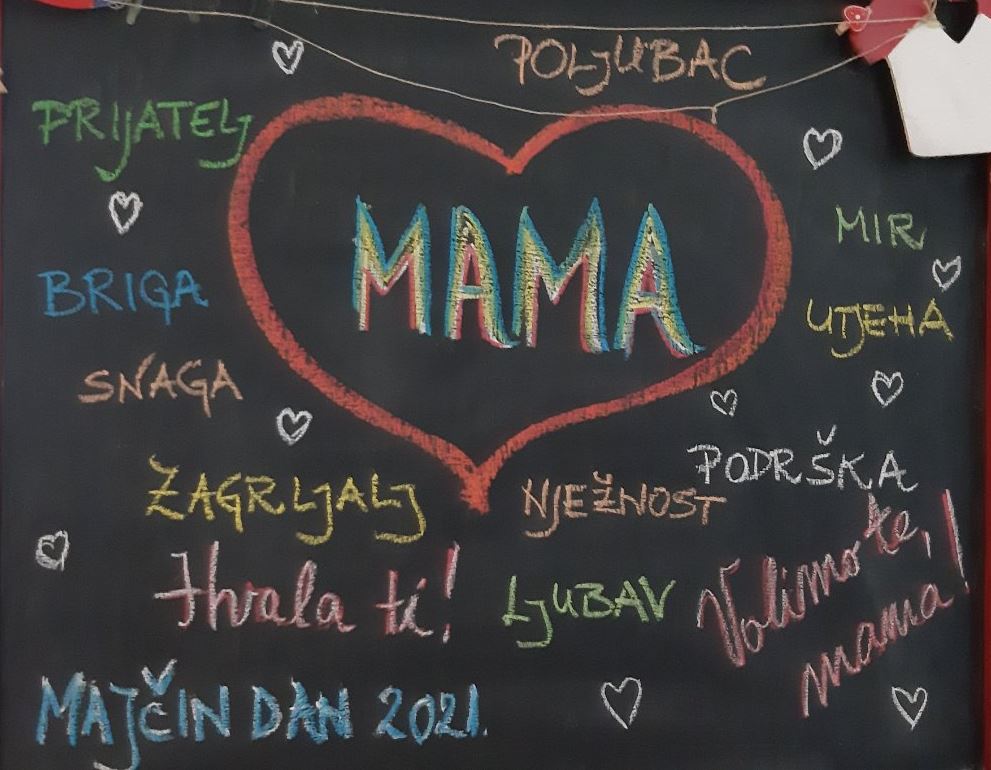 POLJUBAC
PRIJATELJ
MAMA
MIR
BRIGA
UTJEHA
SNAGA
PODRŠKA
ZAGRLJALJ
NJEŽNOST
Hvala ti!
LJUBAV
Volimo te,
mama!
MAJČIN DAN 2021.